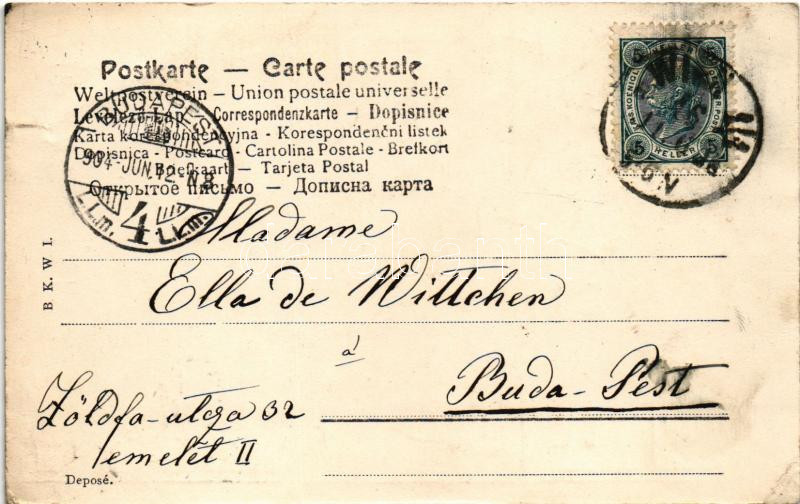 Postkarte — Carte postale
Weltpostverein - Union postale universelle
Levelező-Lap - Correspondenzkarte - Dopisnice
Karta korespondencyjna - Korespondenční listek
Dopisnica - Postcard - Cartolina Postale - Brefkort
Briefkaart - Tarjeta Postal
Открытое письмо - Дописна карта
BUDAPEST
904 JUN. 12 N 8
4
5 HELLER 5
B. K. W. I.
Madame
Ella de Wittchen
à
Buda-Pest
Zöldfa-utcza 32
emelét II
Deposé.